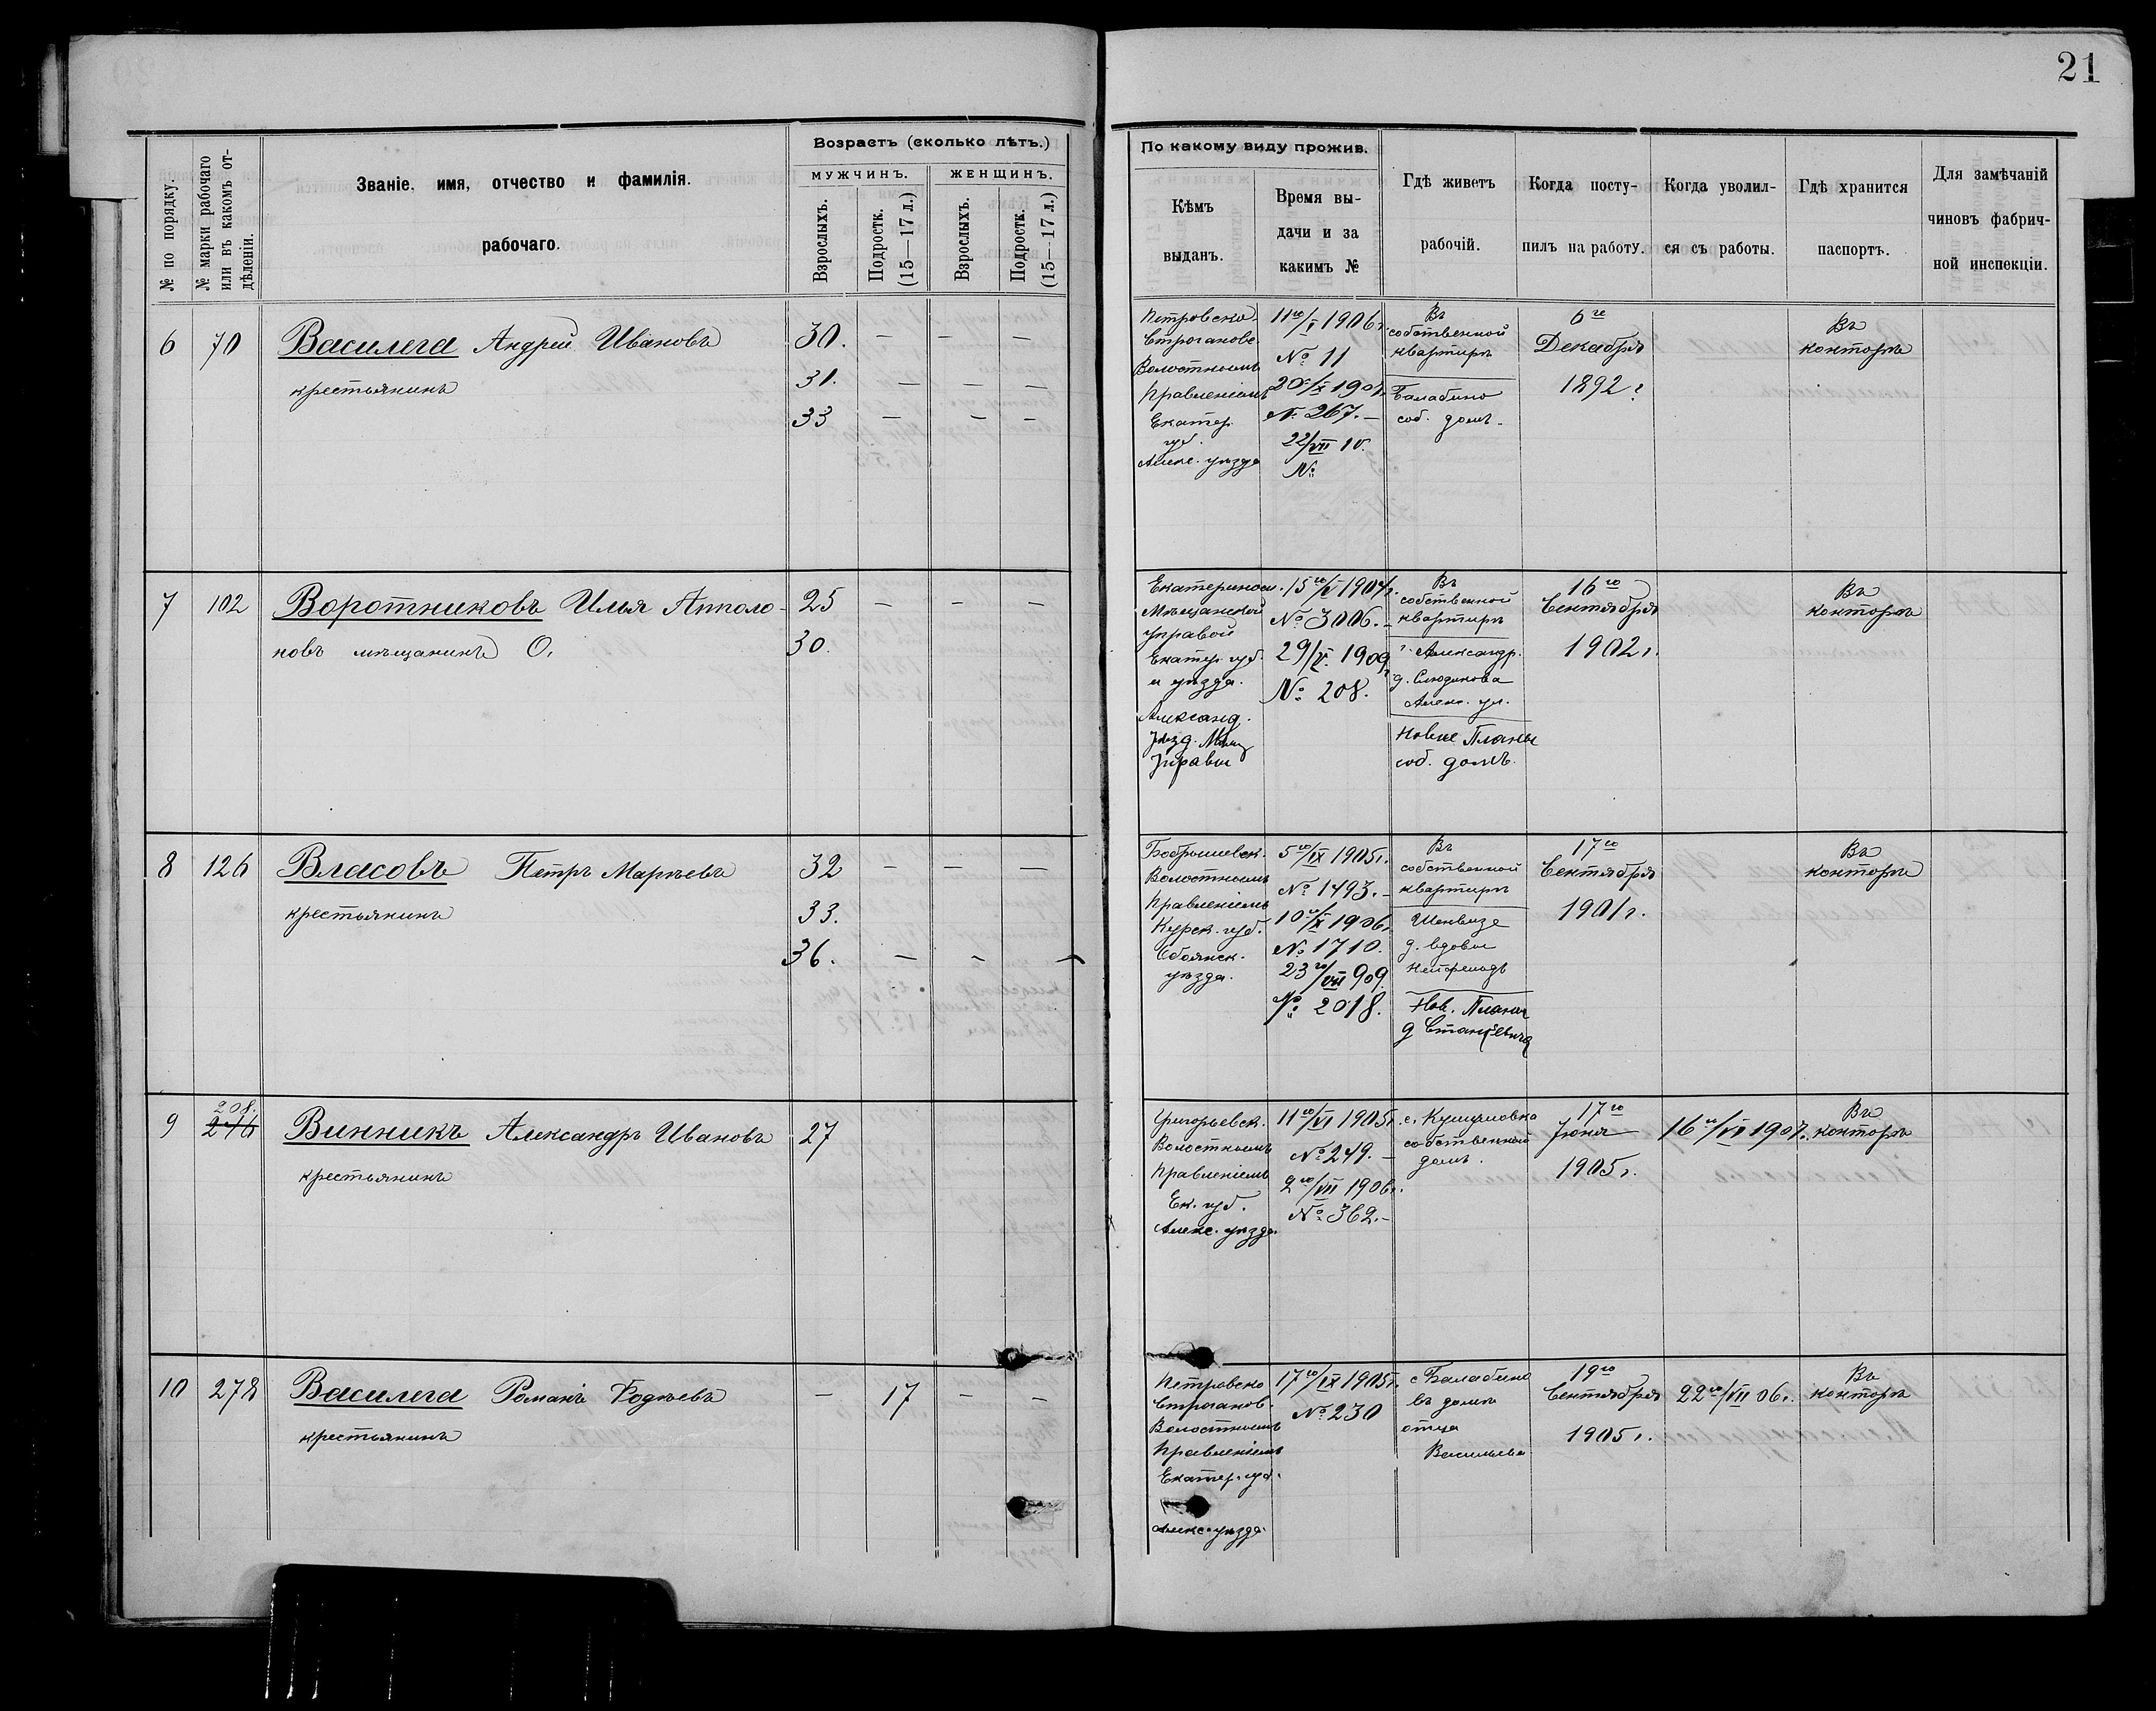 21
№ по порядку.
№ марки рабочаго или въ какомъ отдѣленіи.
Званіе, имя, отчество и фамилія.
рабочаго.
Возрастъ (сколько лѣтъ.)
МУЖЧИНЪ.
ЖЕНЩИНЪ.
Взрослыхъ.
Подростк. (15—17 л.)
Взрослыхъ.
Подростк. (15—17 л.)
По какому виду прожив.
Кѣмъ
выданъ.
Время вы-
дачи и за
какимъ №
Гдѣ живетъ
рабочій.
Когда посту-
пилъ на работу.
Когда уволил-
ся съ работы.
Гдѣ хранится
паспортъ.
Для замѣчаній
чиновъ фабрич-
ной инспекціи.
6 70 Василега Андрей Ивановъ 30. — — —
крестьянинъ 31. — — —
33 — — —
Петровско-
Строганово
Волостнымъ
Правленіемъ
Екатер.
губ.
Алекс. уѣзда
11го/I 1906 г.
№ 11
20/X 1907.
№ 267. —
22/VII 10.
№
Въ
собственной
квартирѣ
Балабино
соб. домъ.
6го
Декабря
1892 г
Въ
конторѣ
7 102 Воротниковъ Илья Апполо- 25 — — —
новъ мѣщанинъ О. 30.
Екатеринос.
Мѣщанской
Управой
Екатер. губ.
и уѣзда.
Александ.
Уѣзд. Мѣщ
Управы
15го/V 1904 г.
№ 3006. —
29/V. 1909
№ 208.
Въ
собственной
квартирѣ
г. Александр.
д. Слюдикова
Алекс. ул.
Новые Планы
соб. домъ.
16го
Сентября
1902 г.
Въ
конторѣ
8 126 Власовъ Петръ Марѣевъ 32 — — —
крестьянинъ 33.
36. — — —
Бобрышевск.
Волостнымъ
Правленіемъ
Курск. губ.
Обоянск.
уѣзда.
5го/IX 1905 г.
№ 1493. —
10го/X 1906 г.
№ 1710.
23го/VII 909
№ 2018.
Въ
собственной
квартирѣ
Шенвизе
д. вдовы
Нов. Планы
д Станкевича
17го
Сентября
1901 г.
Въ
конторѣ
208.
9 246 Винникъ Александръ Ивановъ 27
крестьянинъ
Григорьевск.
Волостнымъ
Правленіемъ
Ек. губ.
Алекс. уѣзда
11го/VI 1905 г.
№ 249. —
2го/VII 1906 г.
№ 362. —
с. Кушугловка
собственной
домъ.
17го
Іюня
1905 г.
16го/VI 1907.
Въ
конторѣ
10 278 Василега Романъ Фодѣевъ — 17 — —
крестьянинъ
Петровско
Строганов.
Волостнымъ
Правленіемъ
Екатер. губ.
Алекс. уѣзда
17го/IX 1905 г.
№ 230
с Балабино
въ домѣ
отца
Васильева
19го
Сентября
1905 г.
22го/VII 06 г.
Въ
конторѣ